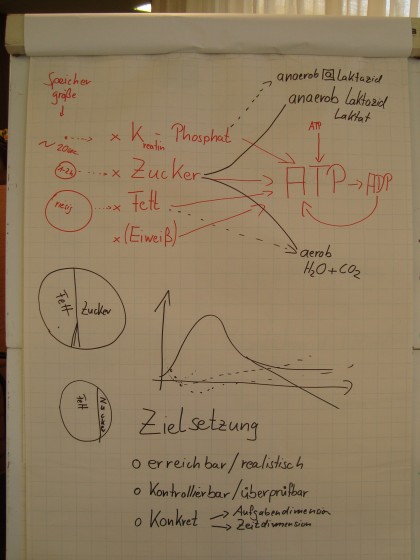 Speicher
größe
anaerob a Laktazid
anaerob Laktazid
Laktat
ATP
x Kreatin - Phosphat
~ 20sec
x Zucker
1-2h
ATP → ADP
x Fett
x (Eiweiß)
aerob
H2O + CO2
Fett Zucker
Fett
Zielsetzung
o erreichbar/realistisch
o Kontrollierbar/überprüfbar
o Konkret → Aufgabendimension
→ Zeitdimension